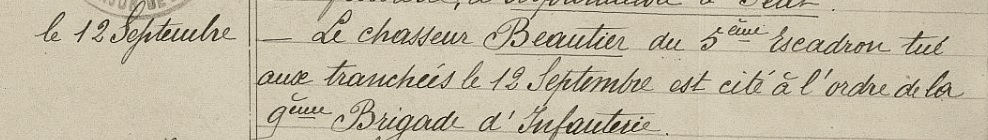 à Petit.
le 12 Septembre
— Le chasseur Beautier du 5ème Escadron tué
aux tranchées le 12 Septembre est cité à l'ordre de la
9ème Brigade d'Infanterie.